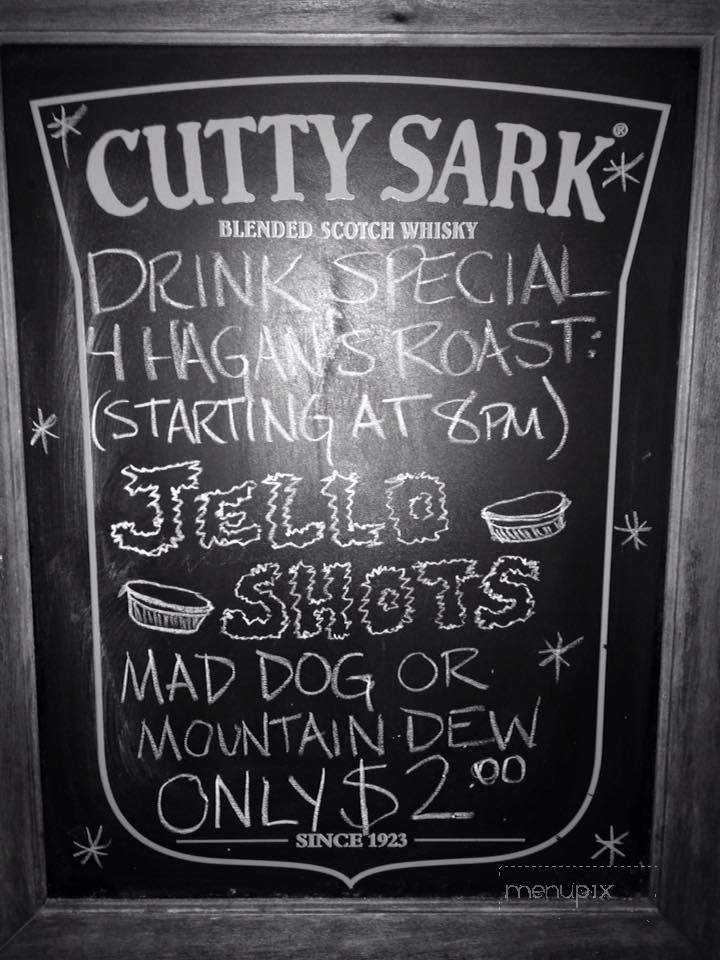 CUTTY SARK®
BLENDED SCOTCH WHISKY
DRINK SPECIAL
4 HAGAN'S ROAST:
(STARTING AT 8PM)
JELLO
SHOTS
MAD DOG OR
MOUNTAIN DEW
ONLY $2.00
SINCE 1923
menupix